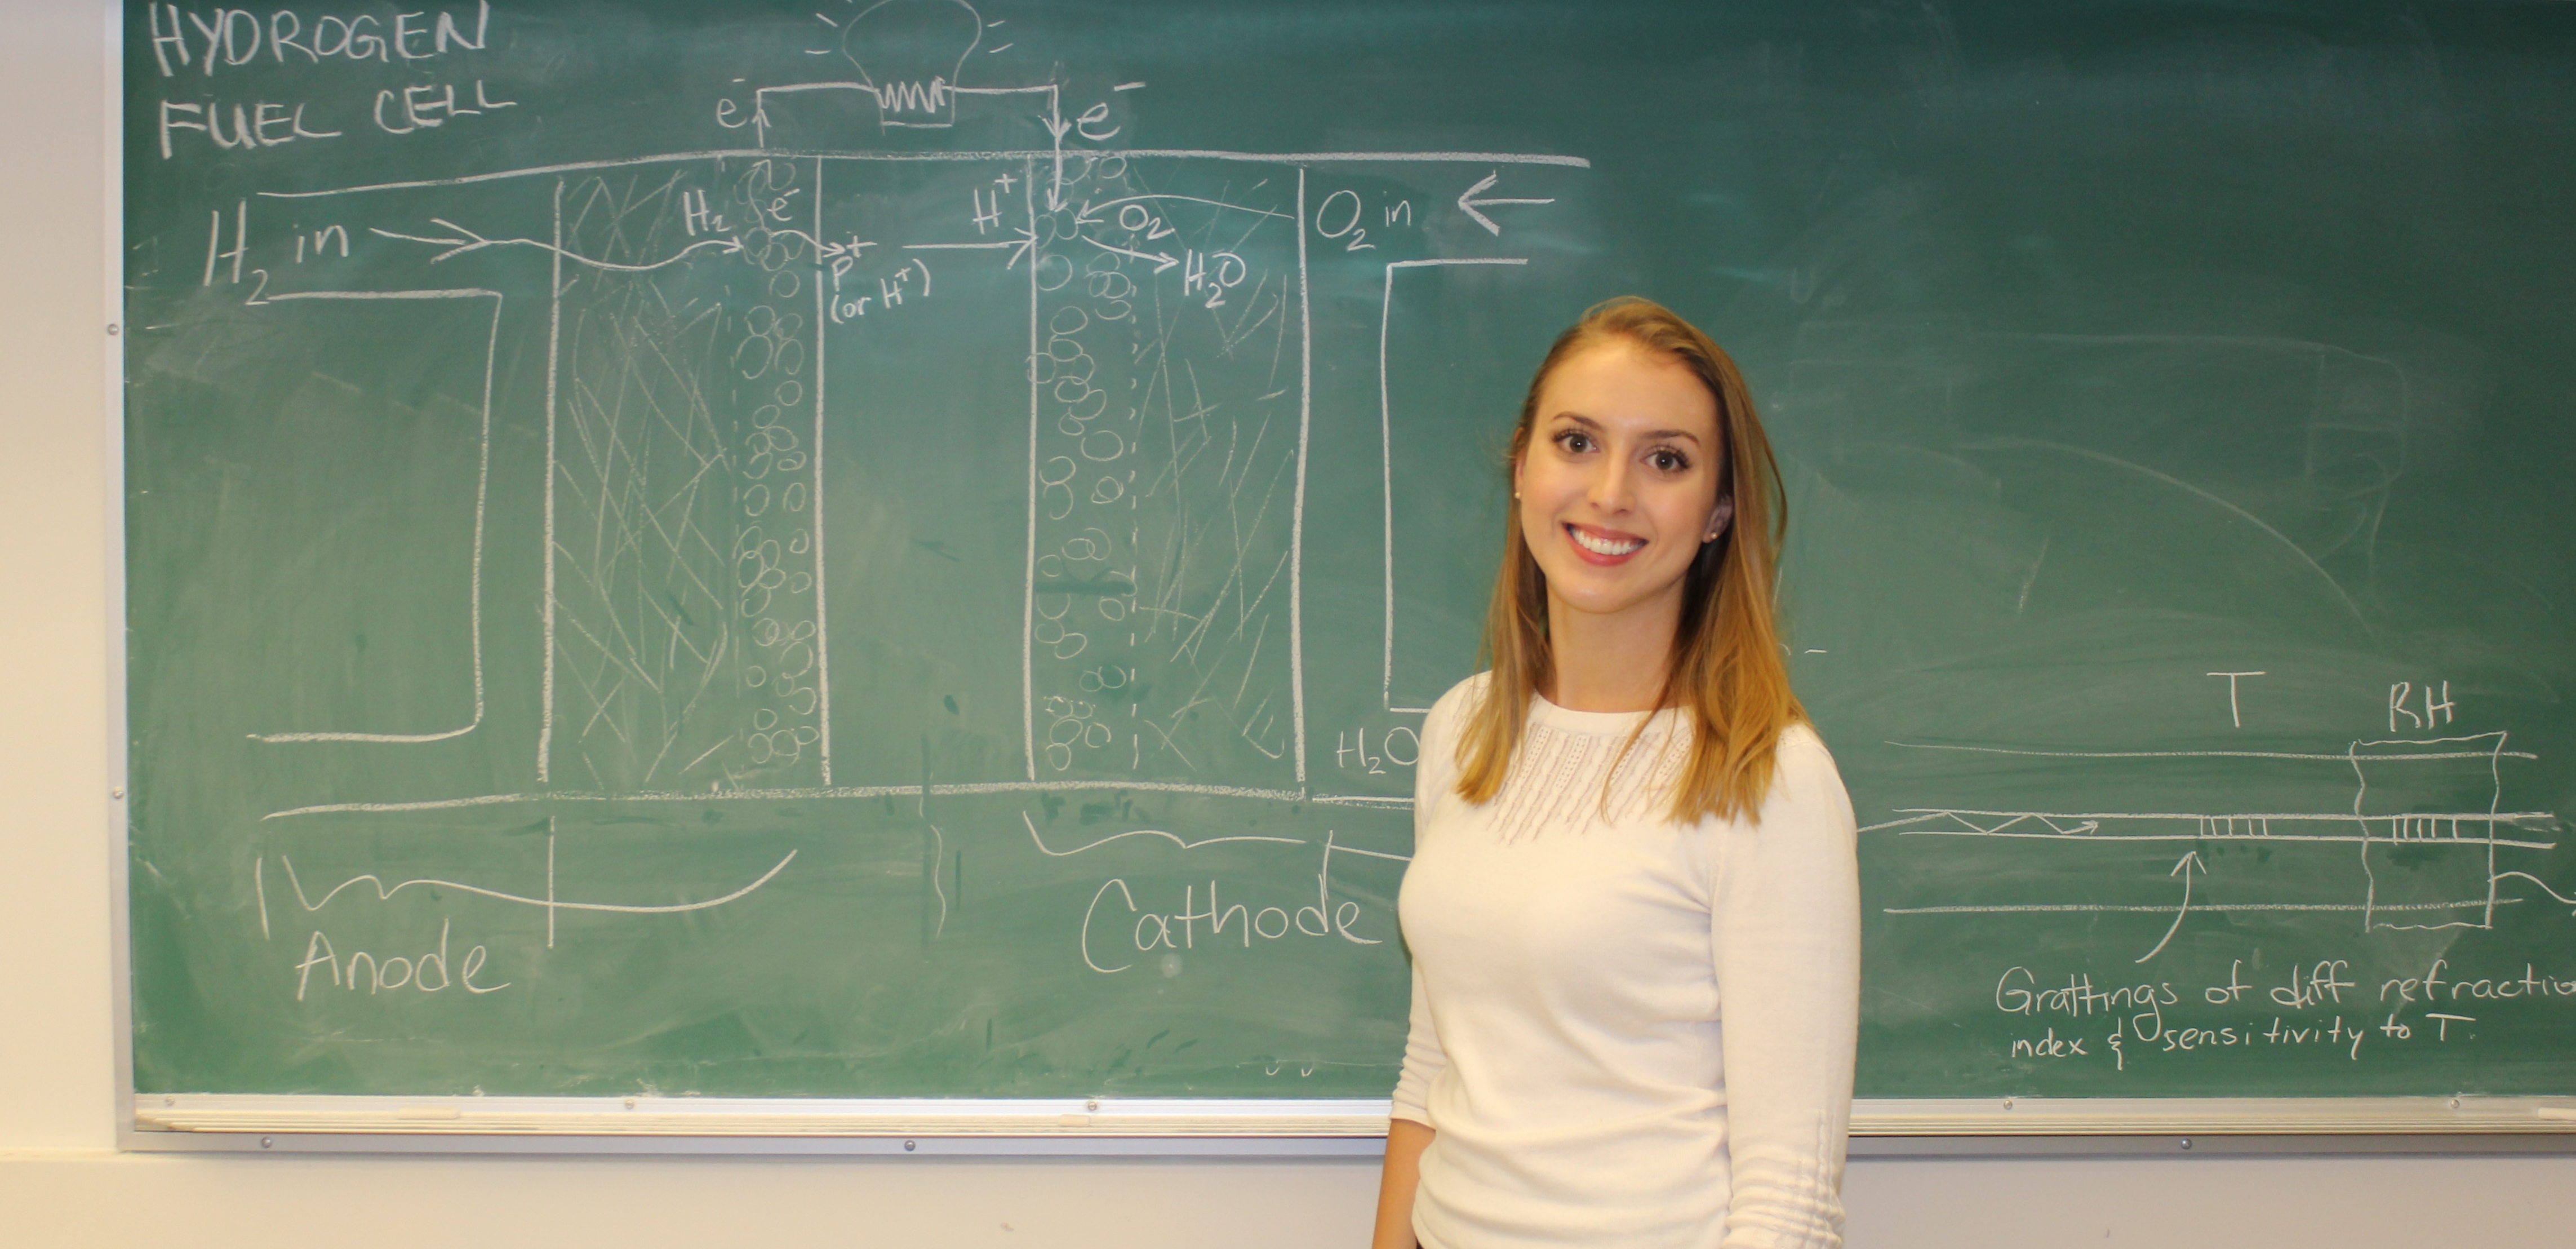 HYDROGEN
FUEL CELL
e⁻
e⁻
H₂ in
H₂
e⁻
p⁺
(or H⁺)
H⁺
O₂
H₂O
O₂ in
H₂O
Anode
Cathode
T
RH
Grattings of diff refractio
index & sensitivity to T.